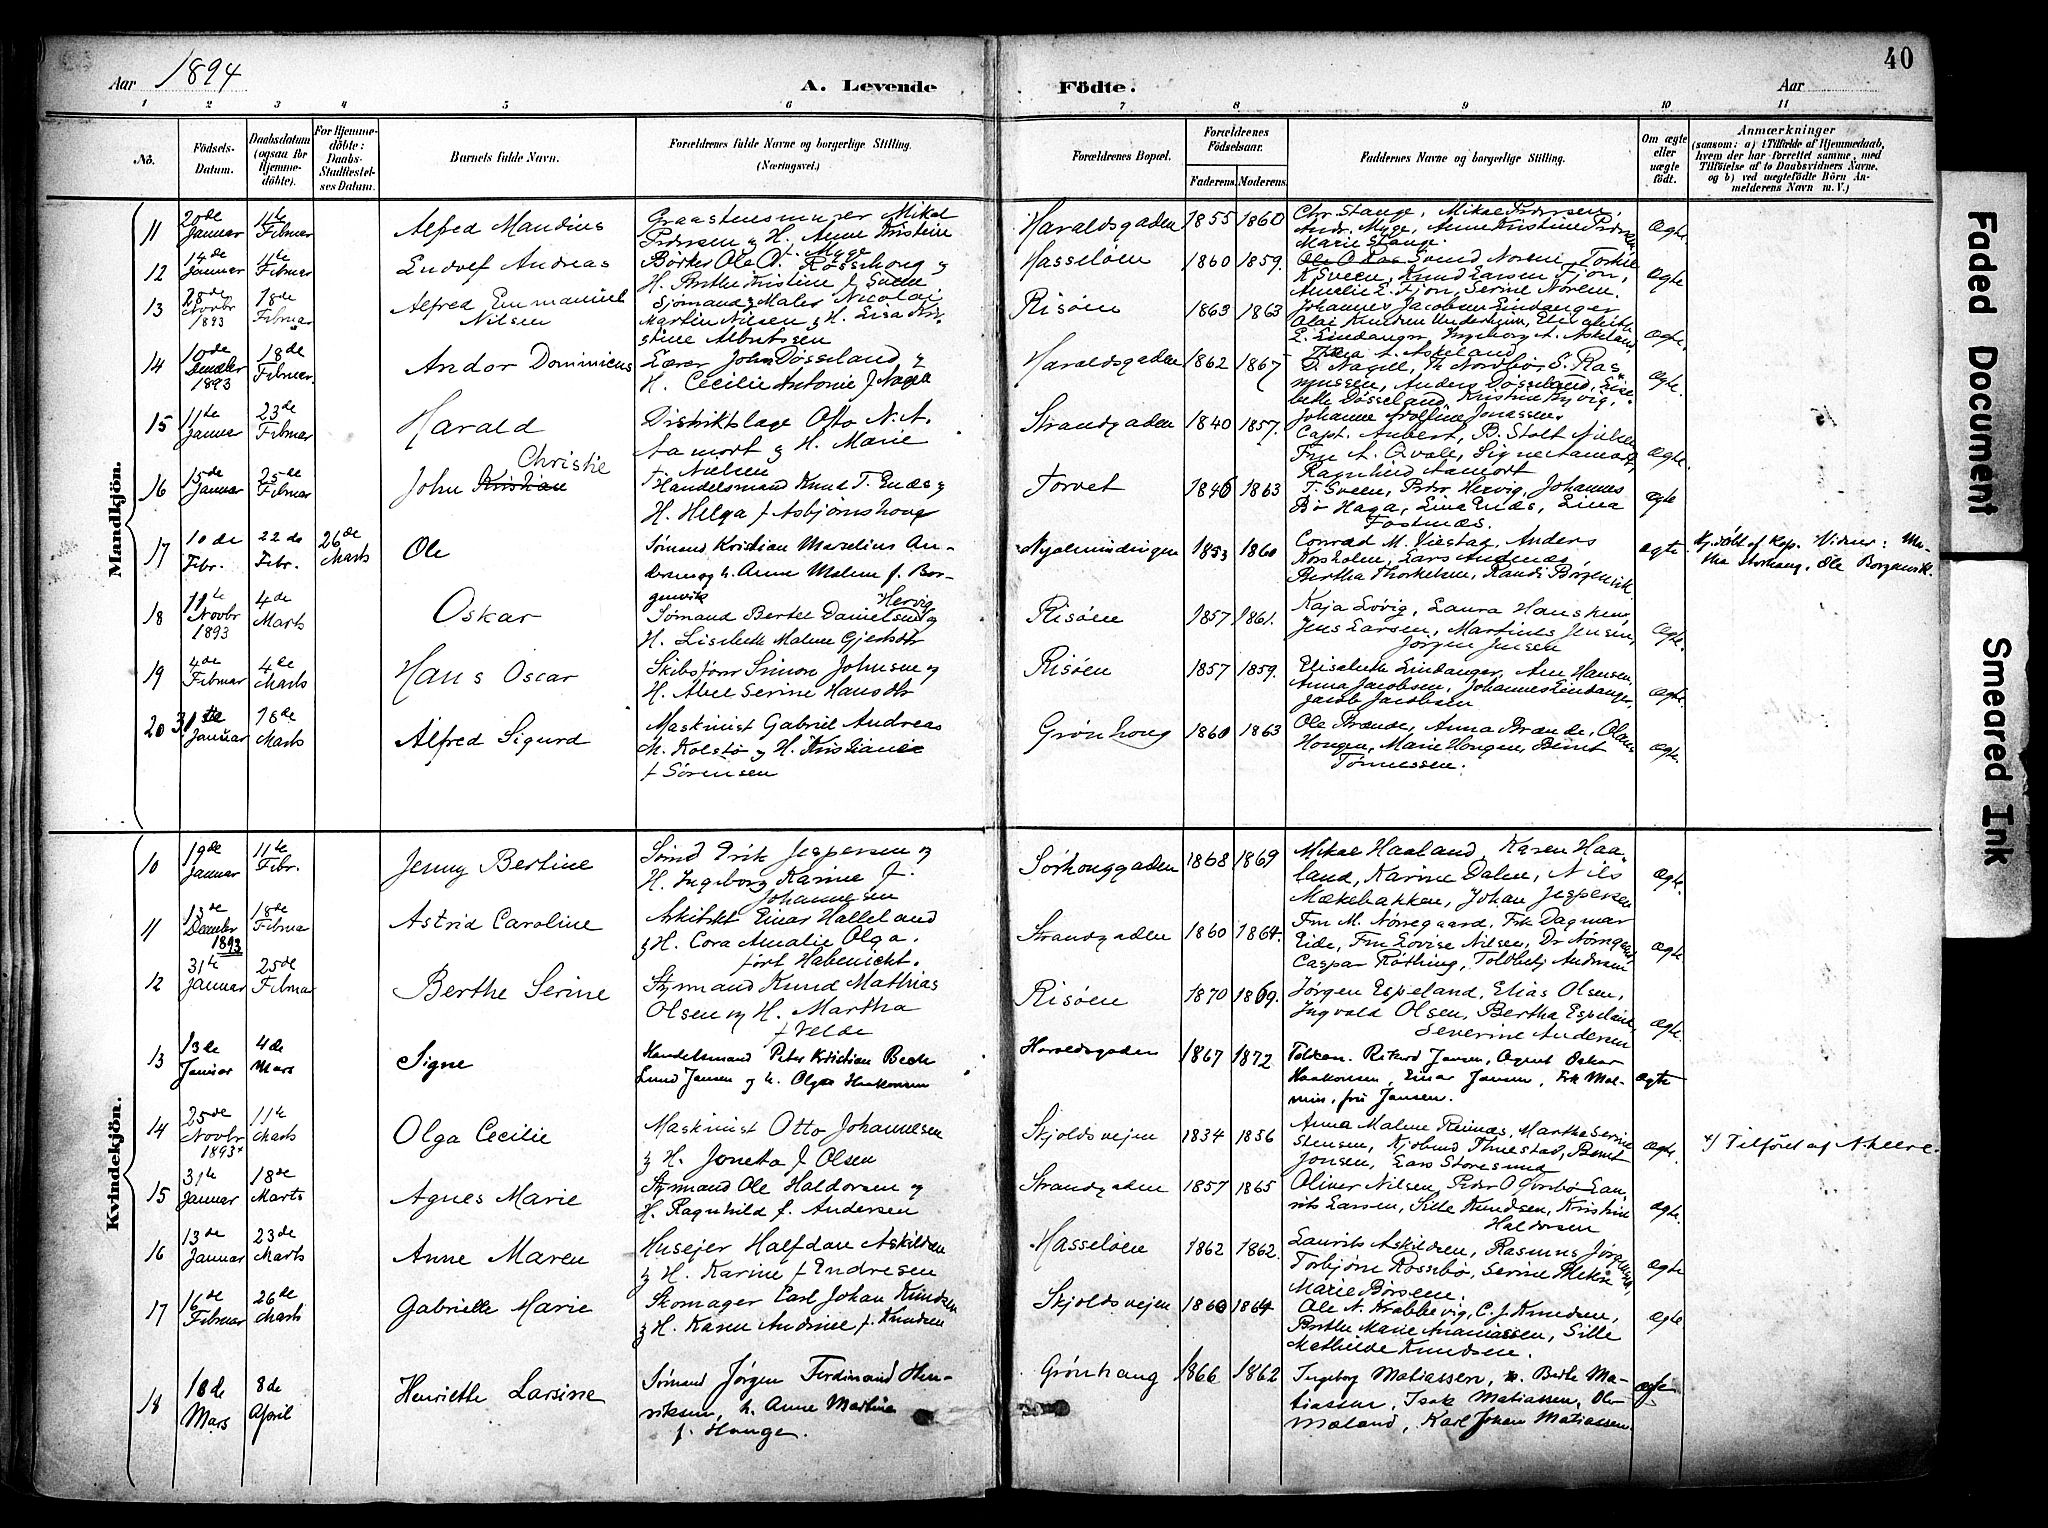 Aar 1894
A. Levende
Födte.
Aar
40
1 2 3 4 5 6 7 8 9 10 11
No.
Födsels-Datum.
Daabsdatum (ogsaa for Hjemmedöbte).
For Hjemmedöbte: Daabs-Stadfæstelses Datum.
Barnets fulde Navn.
Forældrenes fulde Navne og borgerlige Stilling.
(Næringsvei.)
Forældrenes Bopæl.
Forældrenes Födselsaar.
Faderens. Moderens.
Faddernes Navne og borgerlige Stilling.
Om ægte eller uægte födt.
Anmærkninger
(saasom: a) i Tilfælde af Hjemmedaab, hvem der har forrettet samme, med Tilföielse af to Daabsvidners Navne, og b) ved uægtefödte Börn Anmelderens Navn m. V.)
Mandkjön.
11
20de Januar
11te Februar
Alfred Mandius
Graastensmurer Mikal
Pedersen og H. Anne Kristine
f. Myge
Haraldsgaden
1855 1860
Chr Stange, Mikal Pedersen,
Andr. Myge, Anne Kristine Pedersen
Marie Stange.
Ægte.
12
14de Januar
11te Februar
Endolf Andreas
Bødker Ole O. Røsshoug og
H. Berthe Kristine f. Sveen
Hasseløen
1860 1859.
Svend Noreni, Torkil
K Sveen, Knud Larsen Fjon,
Amelie E. Fjon, Serine Noren.
Ægte
13
28de Novbr 1893
18de Februar
Alfred Emmanuel
Nilsen
Sjømand og Maler Nicolai
Martin Nilsen og H. Lisa Kri-
stine Albertsen
Risøen
1863 1863
Johannes Jacobsen Lindanger
Olai Knudsen Underheim, Elisabeth
L. Lindanger, Ingeborg A. Askeland,
Thea A. Askeland
Ægte.
14
10de December 1893
18de Februar.
Andor Dominicus
Lærer John Døsseland og
H. Cecilie Antonie f Nagel
Haraldsgaden
1862 1867
D. Nagell, Th Nordbø, S. Ras-
mussen, Anders Døsseland, Lise-
beth Døsseland, Kristine Byvig,
Johanne Jonassen.
ægte.
15
11te Januar
23de Februar
Harald
Distriktslæge Otto N. A.
Aamodt og H. Marie
f. Nielsen
Strandgaden
1840 1857.
Capt. Aubert, B. Stolt Nielsen
Fru A. Qvale, Signe Aamodt,
Ragnhild Aamodt
Ægte.
16
15de Januar
25de Februar
Christie
John Kristian
Handelsmand Knud T. Enæs og
H. Helga f Asbjørnshoug
Torvet
1846 1863
T. Sveen, Peder Hervig, Johannes
Bø Haga, Lina Enæs, Lina
Fostnæs.
ægte
17
10de Febr.
22de Febr.
26de Marts
Ole
Sømand Kristian Marelius An-
dersen og h. Anne Malene f. Bor-
genvik
1853 1860
Conrad M. Viestad, Anders
Korsholm, Lars Andenæs,
Bertha Thorkelsen, Randi Borgenvik
ægte
Hj.døbt af Kap. Vidner: Ma-
Ole Borgenvik.
18
11te Novbr 1893
4de Marts
Oskar
Hervig
Sømand Bertel Danielsen og
H. Lisebeth Malene Gjertsdtr
Risøen
1857 1861.
Kaja Løvig, Laura Hansken,
Jens Larsen, Martines Jensen,
Jørgen Jensen
Ægte.
19
4de Februar
4de Marts
Hans Oscar
Skibstømr Simon Johnsen og
H. Abel Serine Hansdtr
Risøen
1857 1859.
Elisabeth Lindanger, Ane Hansen,
Anna Jacobsen, Johannes Lindanger,
Jacob Jacobsen
Ægte.
20
31te Januar
18de Marts
Alfred Sigurd
Maskinist Gabriel Andreas
M. Kolstø og H. Kristiane
f Sörensen
Grønhoug
1860 1863
Ole Brænde, Anna Brænde, Olava
Hougen, Marie Hougen, Bernt
Tønnessen.
Ægte.
Kvindekjön.
10
19de Januar
11te Febr.
Jenny Bertine
Sømd Erik Jespersen og
H. Ingeborg Karine f.
Johannesen
Sørhouggaden
1868 1869
Mikal Haaland, Karen Haa-
land, Karine Dalen, Nils
Mækebakken, Johan Jespersen
Ægte.
11
13de December 1893
18de Februar
Astrid Caroline
Arkitekt Einar Halleland
og H. Cora Amalie Olga.
født Habenicht.
Strandgaden
1860 1864.
Fru M. Nørregaard, Frk Dagmar
Eide, Fru Lovise Nilsen, Dr Nørregaard,
Caspar Røthing, Toldbetj Andersen
Ægte.
12
31te Januar
25de Februar
Berthe Serine
Styrmand Knud Mathias
Olsen og H. Martha
f Velde
Risøen
1870 1869.
Jørgen Espeland, Elias Olsen,
Ingvald Olsen, Bertha Espeland,
Severine Andersen
Ægte.
13
13de Januar
4de Mars
Signe
Handelsmand Peter Kristian Bech
Lund Jansen og h. Olga Haakonsen
Haraldsgaden
1867 1872
Toldkas. Rikard Jansen, Agent Oskar
Haakonsen, Einar Jansen, Frk Mal-
min, fru Jansen.
ægte
14
25de Novbr 1893
11te Marts
Olga Cecilie
Maskinist Otto Johannesen
og H. Jonetta f Olsen
Skjoldsvejen
1834 1856
Anna Malene Reinæs, Martha Serine
Stensen, Kjølund Thuestad, Bernt
Jonsen, Lars Storesund
ægte.
x) Tilføiet af N. Leere.
15
31te Januar
18de Marts
Agnes Marie
Styrmand Ole Haldorsen og
H. Ragnhild f. Andersen
Strandgaden
1857 1865
Oliver Nilsen, Peder O Gordbø Lau-
rits Larsen, Sille Knudsen, Kristine
Haldorsen
ægte.
16
13de Januar
23de Marts
Anne Maren
Husejer Halfdan Askildsen
og H. Karine f Endresen
Hasseløen
1862 1862.
Laurits Askildsen, Rasmus Jørgensen,
Torbjørn Rossebø, Serine
Marie Børsen.
Ægte
17
16de Februar
26de Marts
Gabrielle Marie
Skomager Carl Johan Knudsen
og H. Karen Andrine f. Knudsen
Skjoldsvejen
1860 1864
Ole N. Krabbevig, C. J. Knudsen,
Berthe Marie Ananiassen, Sille
Mathilde Knudsen.
Ægte.
18
18de Mars
8de April
Henriette Larsine
Sømand Jørgen Ferdinand Hen-
riksen, h. Anne Martine
f. Hauge.
Grønhaug
1866 1862
Ingeborg Matiassen, Berte Ma-
tiassen, Isak Matiassen, Ole
Mæland, Karl Johan Matiassen.
ægte
Faded Document
Smeared Ink